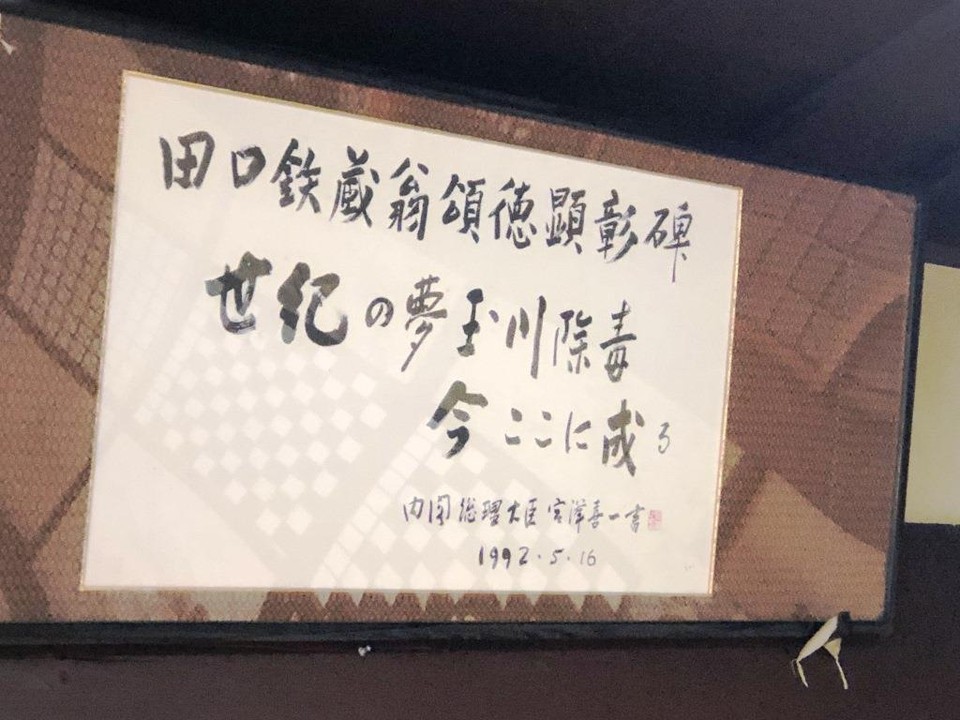 田口鉄蔵翁頌徳顕彰碑
世紀の夢玉川除毒
今ここに成る
内閣総理大臣宮澤喜一書
1992.5.16